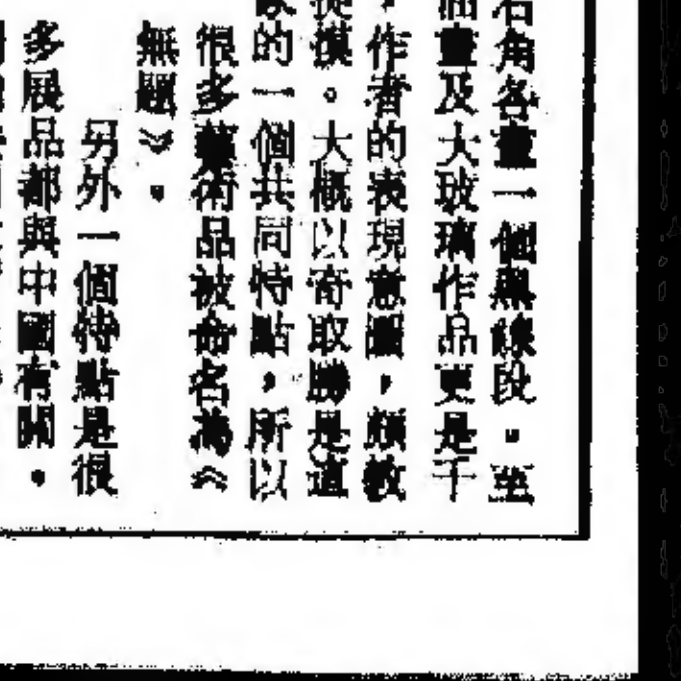 右角各畫一個黑線段。至
畫及大玻璃作品更是千
，作者的表現意圖，頗教
摸。大概以奇取勝是這
的一個共同特點，所以
很多藝術品被命名為《
無題》。
另外一個特點是很
多展品都與中國有關。